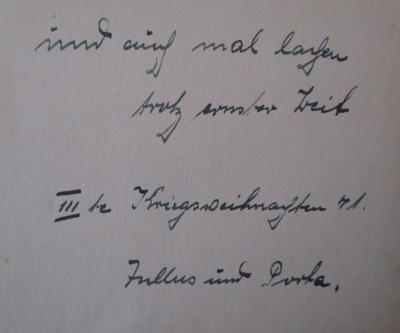 und auch mal lachen
trotz ernster Zeit
III te Kriegsweihnachten 41.
und Porta.